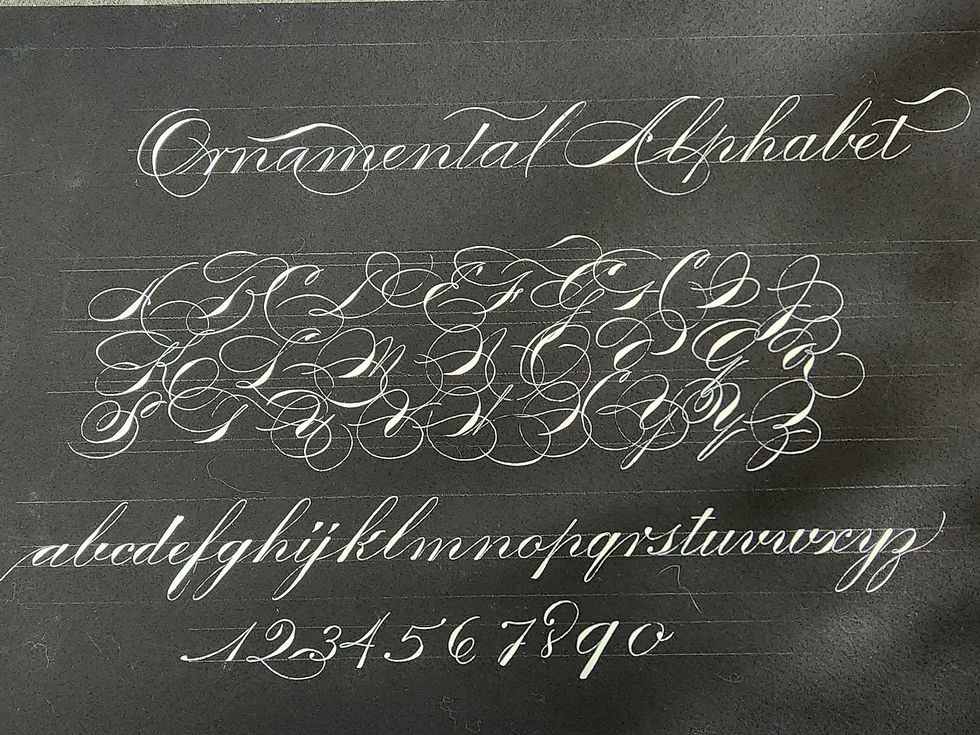 Ornamental Alphabet
A B C D E F G H I J
K L M N O P Q R
S T U V W X Y Z
abcdefghijklmnopqrstuvwxyz
1234567890